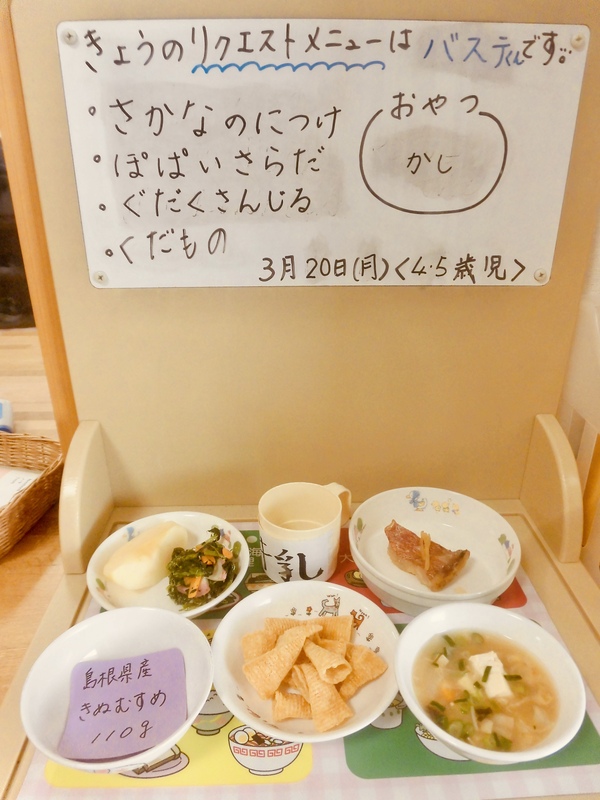 きょうのリクエストメニューは バスティくんです。
・さかなのにつけ
・ぽぱいさらだ
・ぐだくさんじる
・くだもの
おやつ
かし
3月20日(月)<4・5歳児>
牛乳
島根県産
きぬむすめ
110g